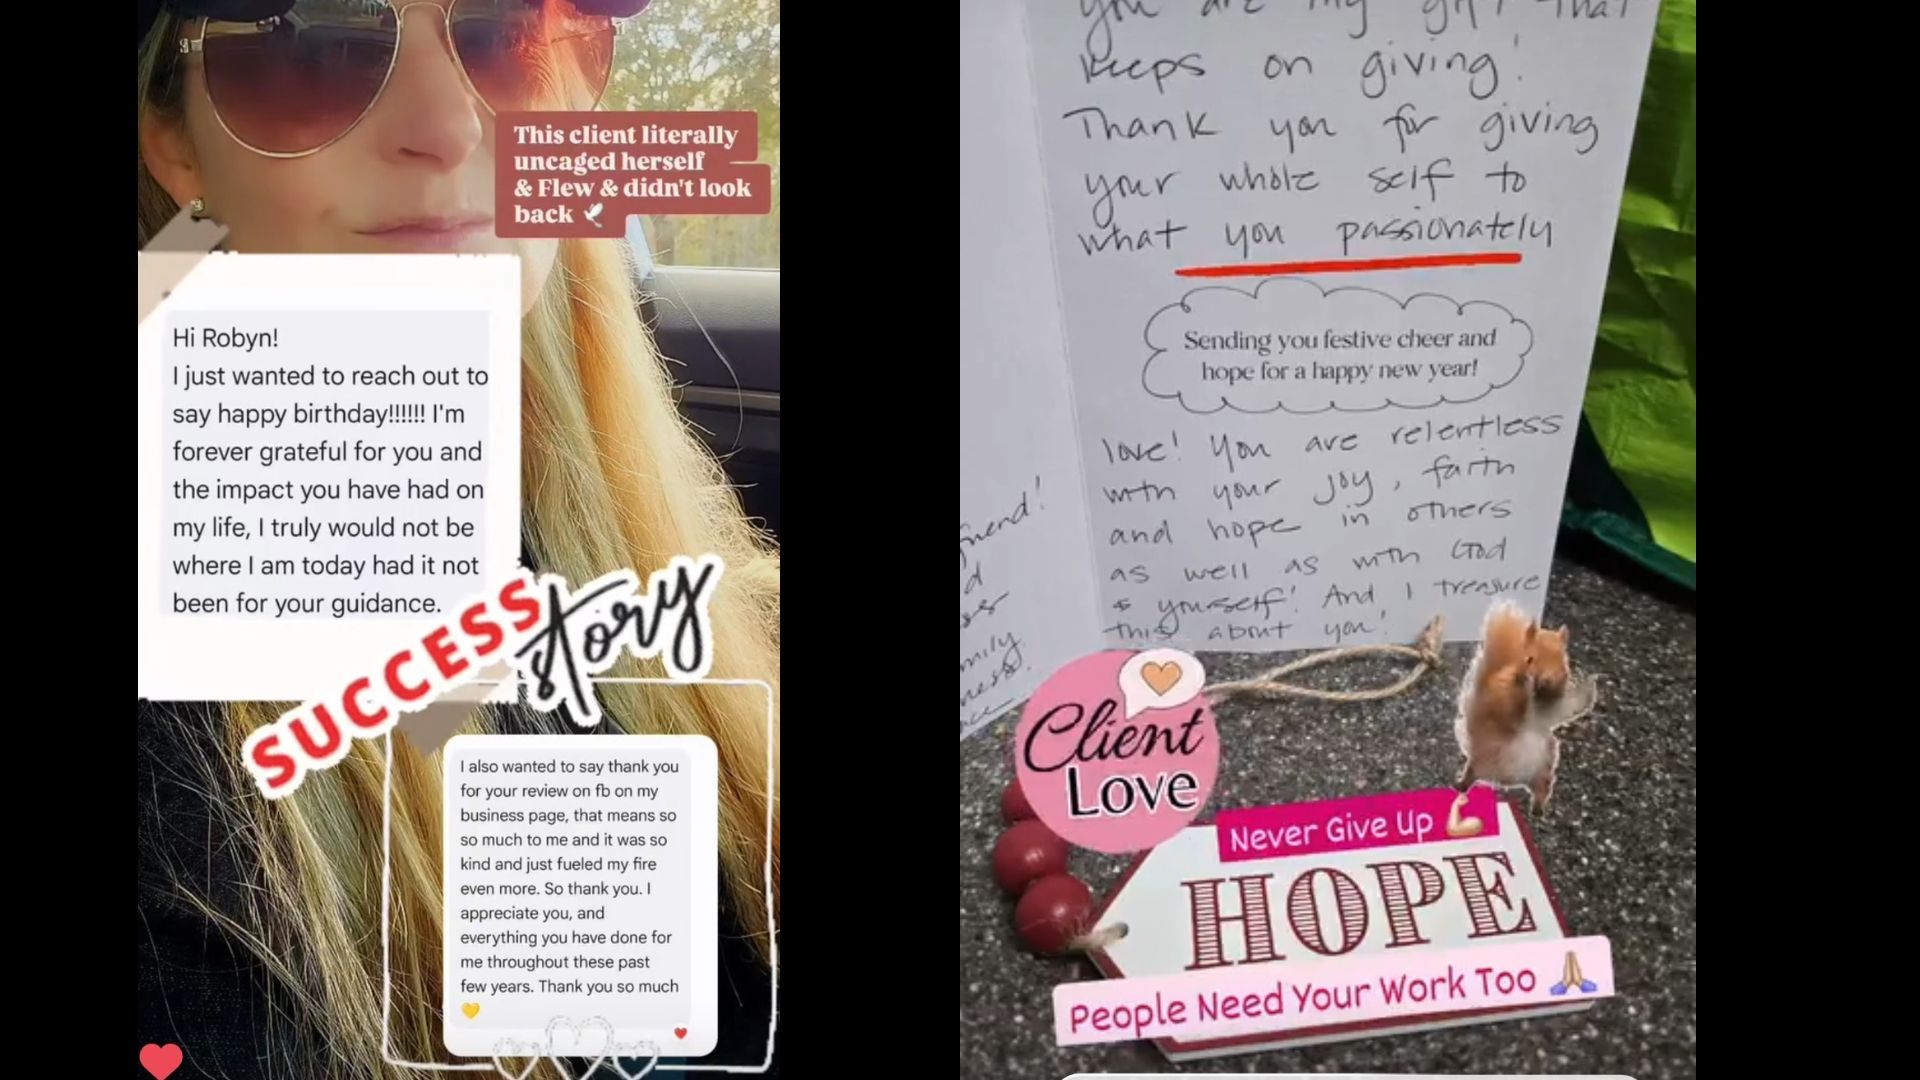 This client literally
uncaged herself
& Flew & didn't look
back 🕊️
Hi Robyn!
I just wanted to reach out to
say happy birthday!!!!!! I'm
forever grateful for you and
the impact you have had on
my life, I truly would not be
where I am today had it not
been for your guidance.
SUCCESS
story
I also wanted to say thank you
for your review on fb on my
business page, that means so
so much to me and it was so
kind and just fueled my fire
even more. So thank you. I
appreciate you, and
everything you have done for
me throughout these past
few years. Thank you so much
💛
you are my gift that
keeps on giving!
Thank you for giving
your whole self to
what you passionately
Sending you festive cheer and
hope for a happy new year!
love! You are relentless
with your joy, faith
and hope in others
as well as with God
& yourself! And I treasure
this about you!
friend!
Client
Love
Never Give Up 💪🏼
HOPE
People Need Your Work Too 🙏🏼